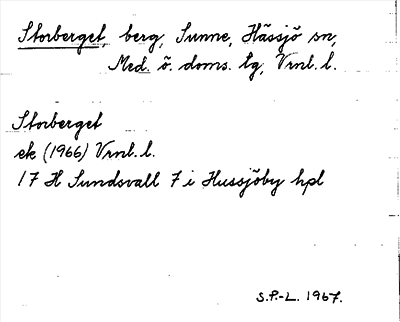 Storberget, berg, Sunne, Hässjö sn,
Med. ö. doms. lg, Vrnl. l.
Storberget
ek (1966) Vrnl. l.
17 H Sundsvall 7 i Hussjöby hpl
S.P.-L. 1967.